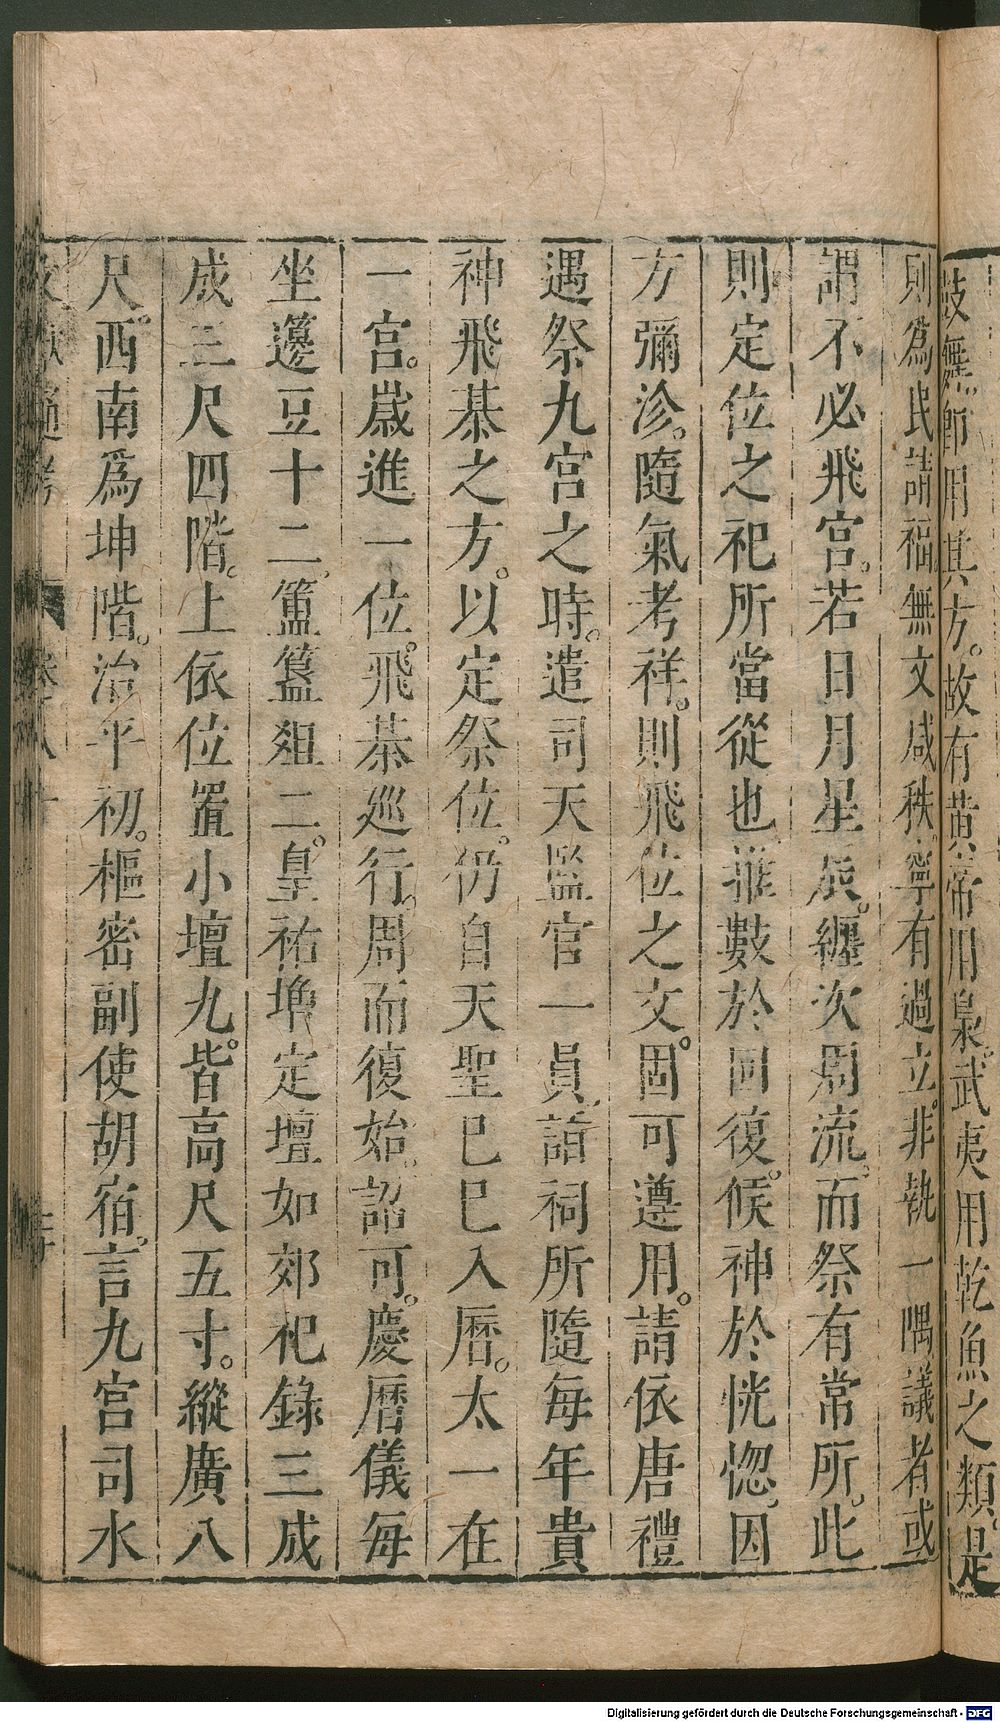 鼓舞節用其方。故有黄帝用梟。武夷用乾魚之類。是
則爲民請福。無文咸秩。寧有過立。非執一隅議者或
謂不必飛宫。若日月星辰。纒次周流。而祭有常所。此
則定位之祀所當從也推數於回復。候神於恍惚。因
方彌沴。隨氣考祥。則飛位之文。固可遵用。請依唐禮
遇祭九宫之時。遣司天監官一員詣祠所隨每年貴
神飛棊之方。以定祭位。仍自天聖己巳入曆。太一在
一宫。歲進一位。飛棊巡行。周而復始。詔可。慶曆儀每
坐籩豆十二簠簋俎二。皇祐增定壇如郊祀錄三成
成三尺四階。上依位置小壇九。皆高尺五寸。縱廣八
尺。西南爲坤階。治平初。樞密副使胡宿。言九宫司水
文獻通考
卷之八十
Digitalisierung gefördert durch die Deutsche Forschungsgemeinschaft - DFG